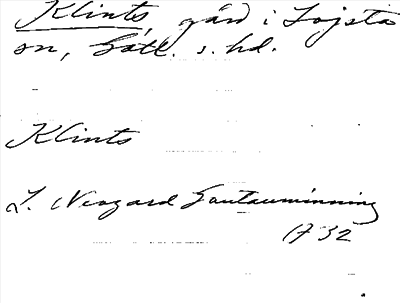 Klints, gård i Lojsta
sn, Gotl. s. hd.
Klints
L. Neogard Gautauminning
1732